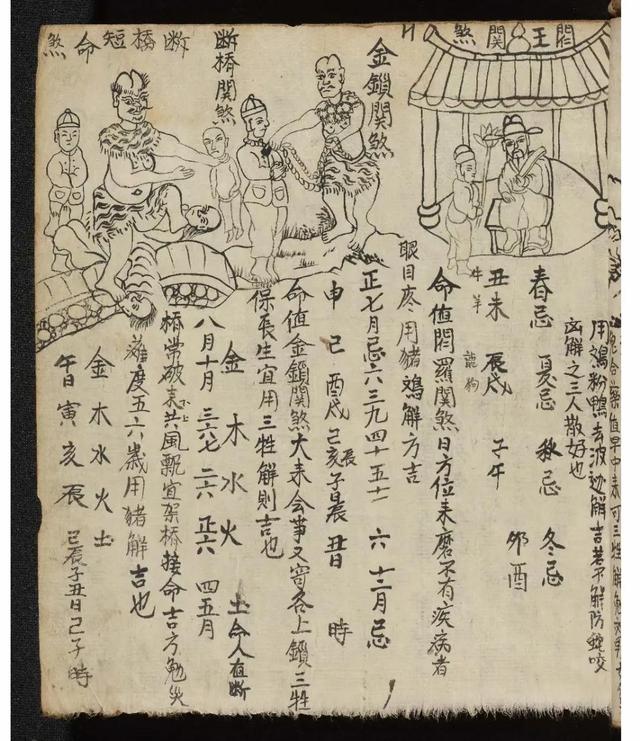 閻王關煞
用鴉粉鴨去波迯解吉若不解防蛇咬
凶解之三人散好也
春忌 夏忌 秋忌 冬忌
丑未 辰戌 子午 卯酉
牛羊 龍狗
命值閻羅關煞日方位未磨不有疾病者
眼目疼用猪鴉解方吉
金鎖關煞
正七月忌 六三九四十五十一 六十二月忌
申巳酉戌 己亥子 丑日 時
命值金鎖關煞大未会爭又宵各上鎖三牲
保長生宜用三牲解則吉也
断橋関煞
金木水火 土命人值斷
八月十月 三六七 二六 正六 四五月
橋常破未不上共風飄宜架橋接命吉方勉災
难度五六歲用猪解吉也
断橋短命煞
金木水火土
午日寅亥辰 己辰子丑日己子時